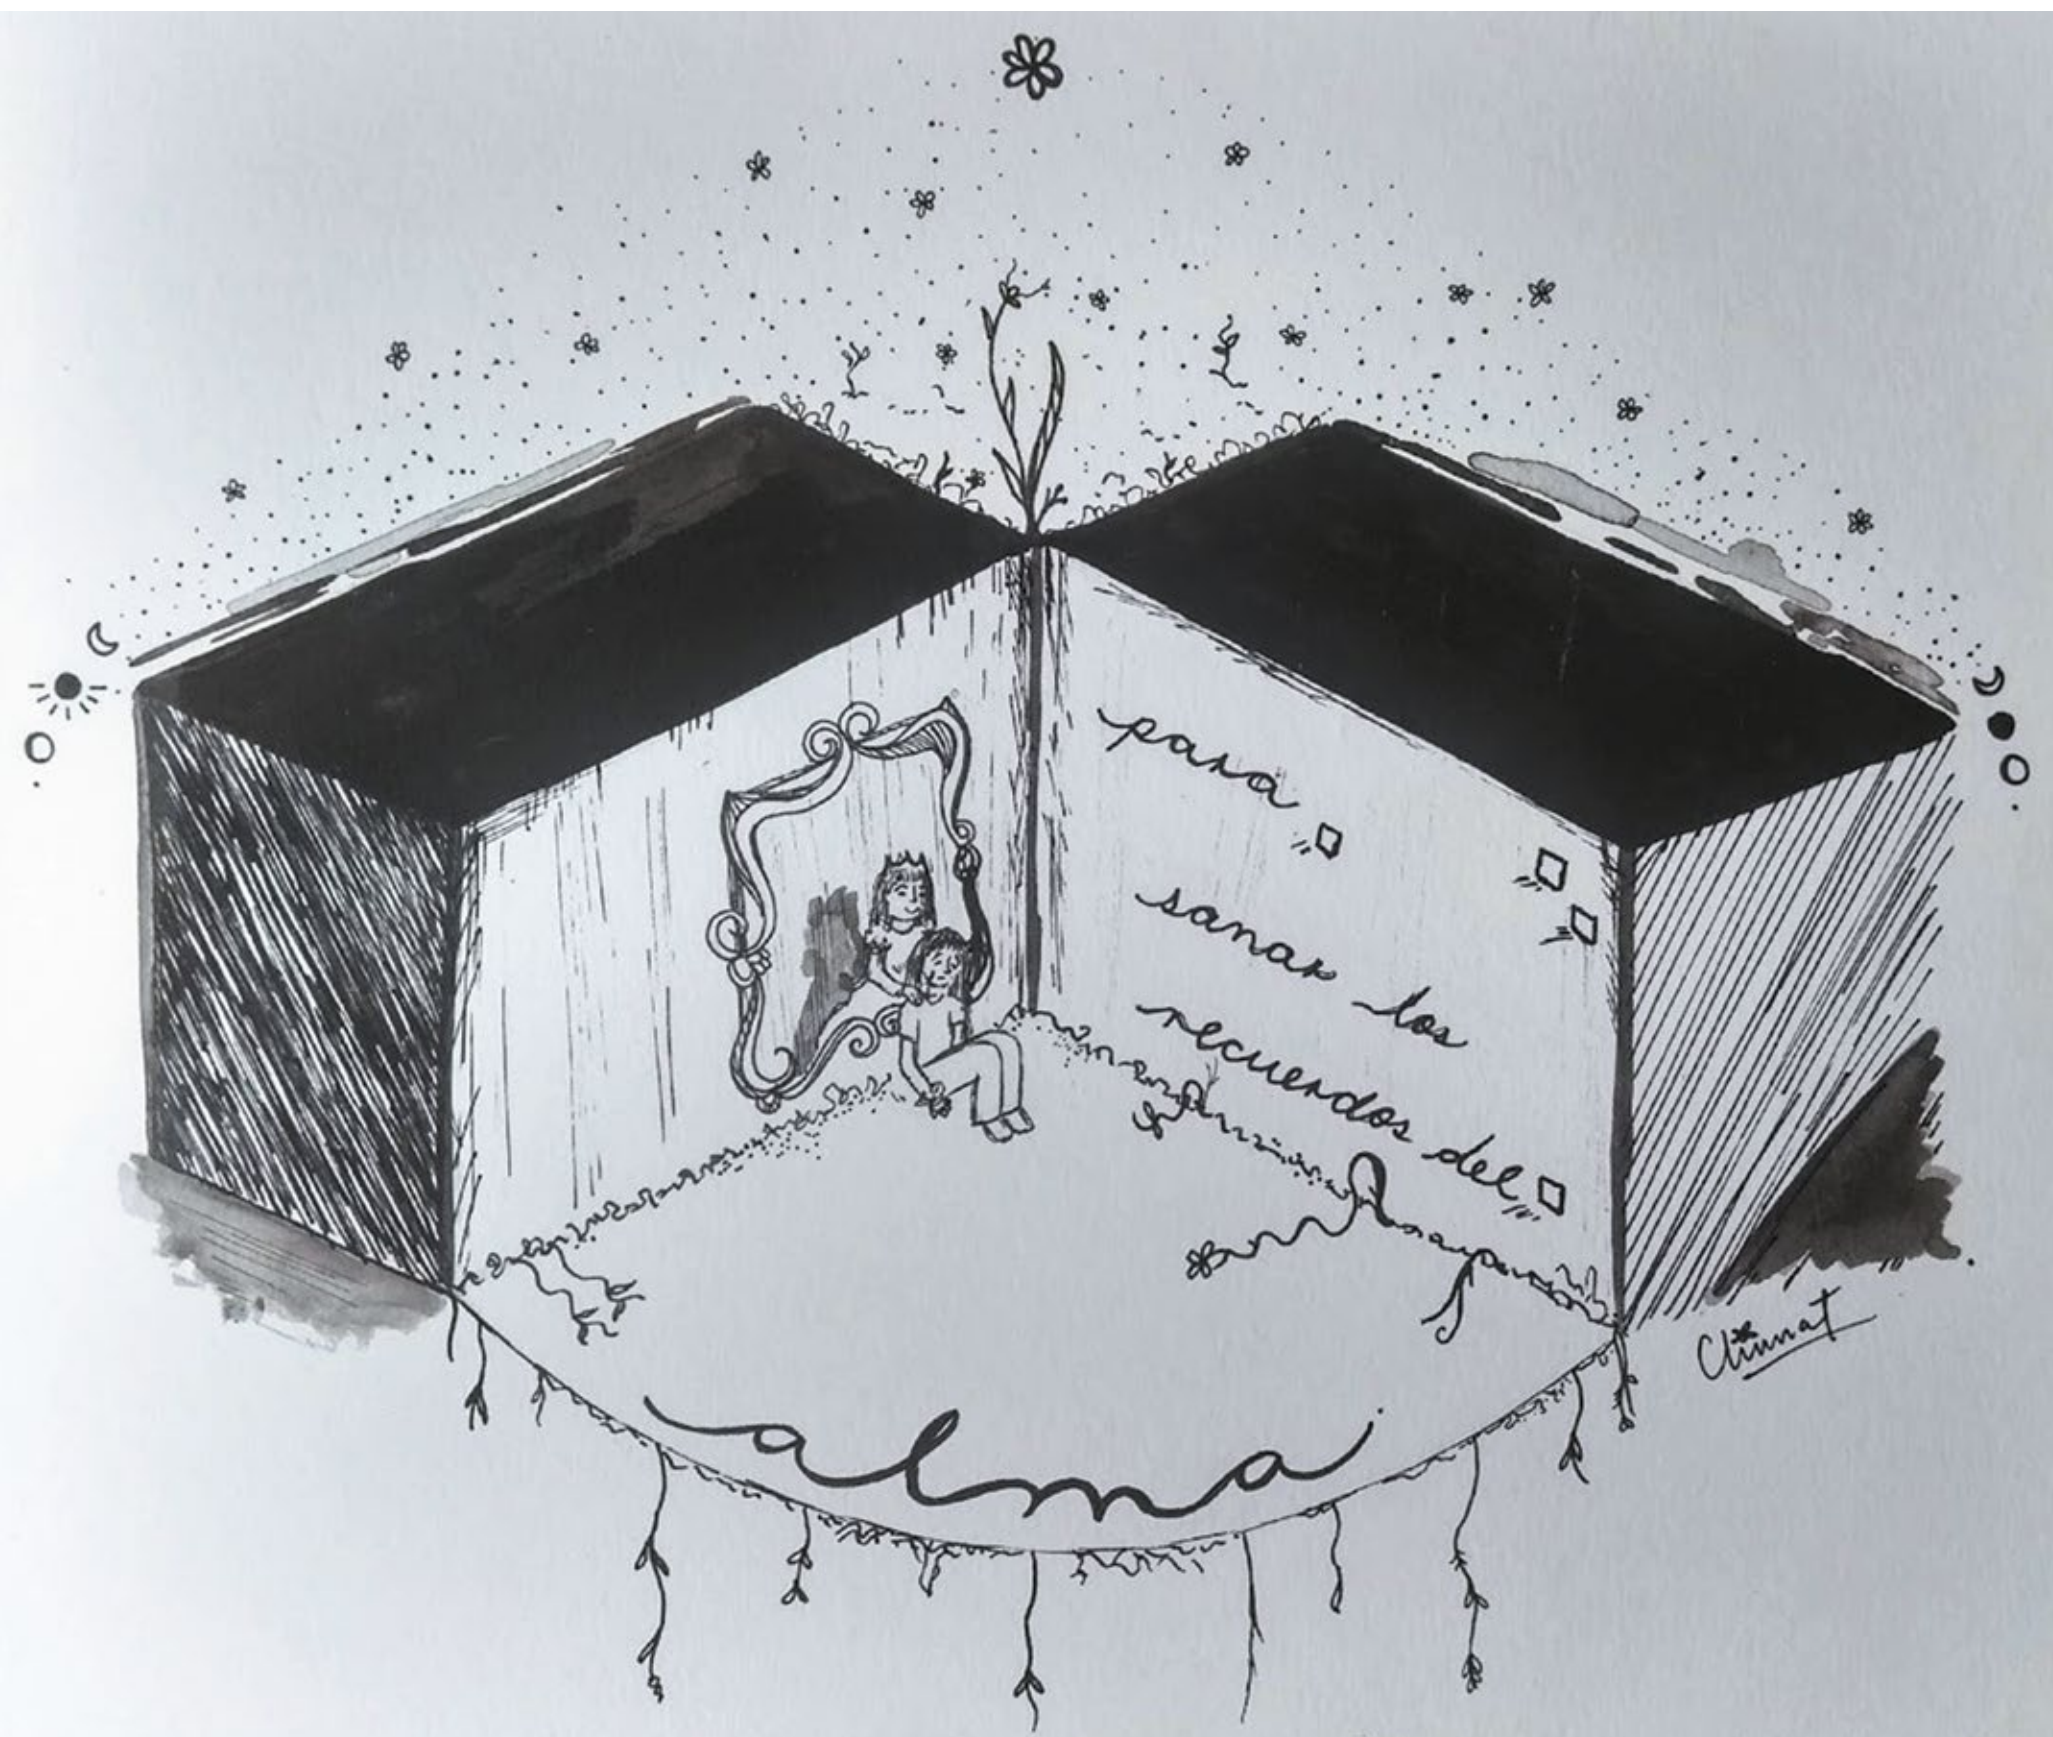 para
sanar los
recuerdos del
alma